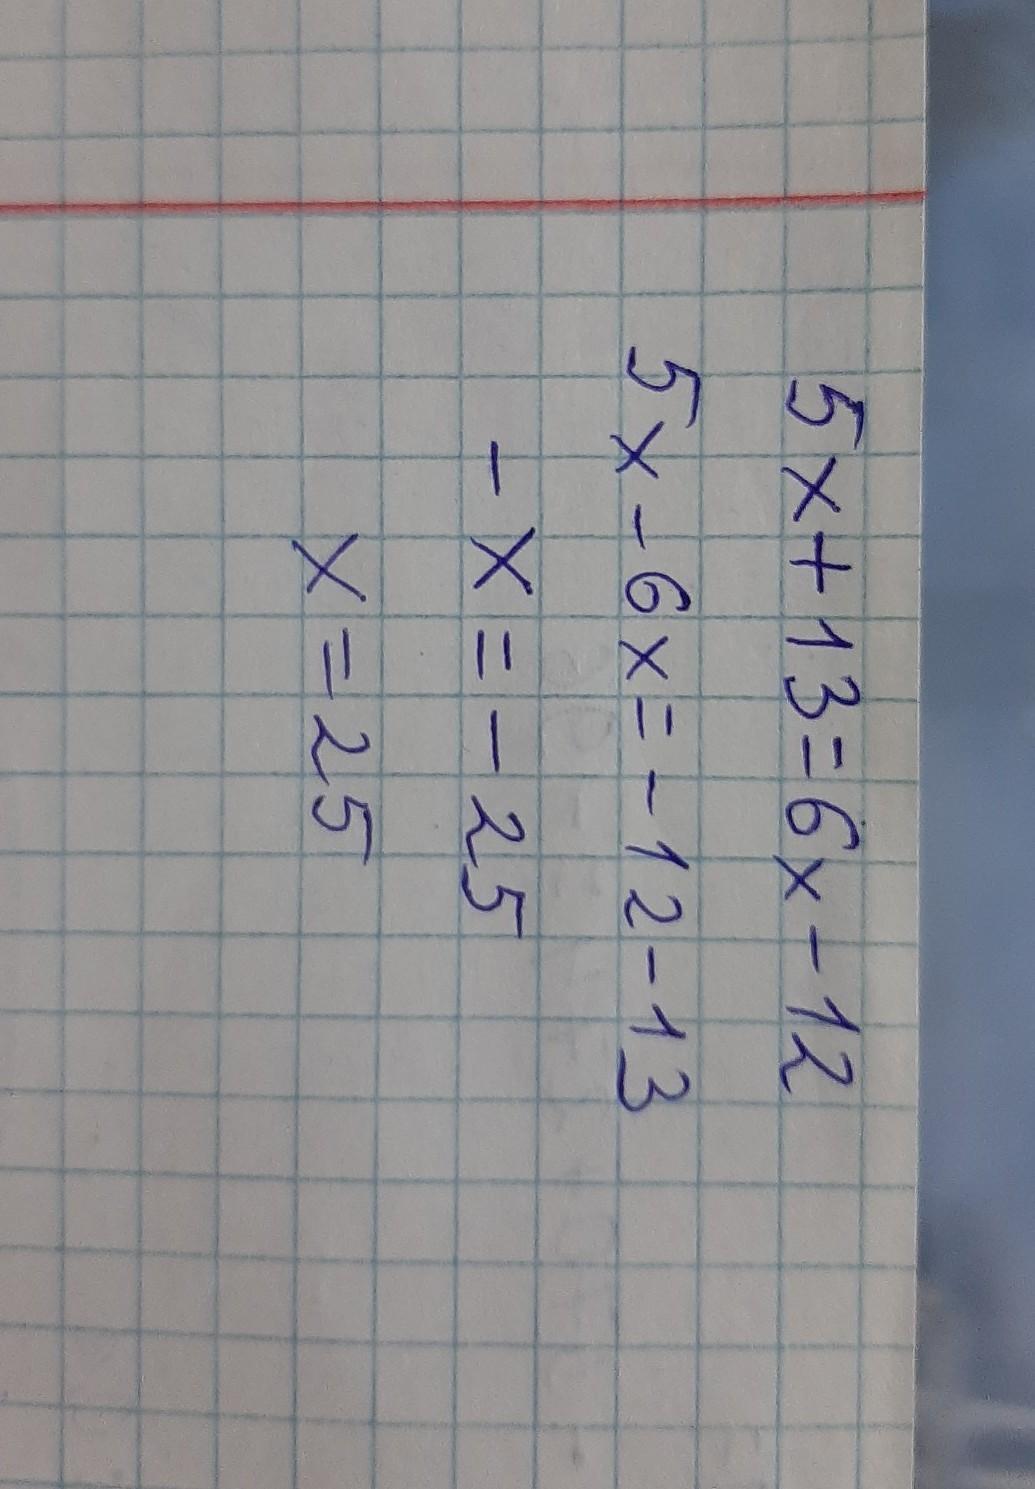 5x+13=6x-12
5x-6x=-12-13
-x=-25
x=25